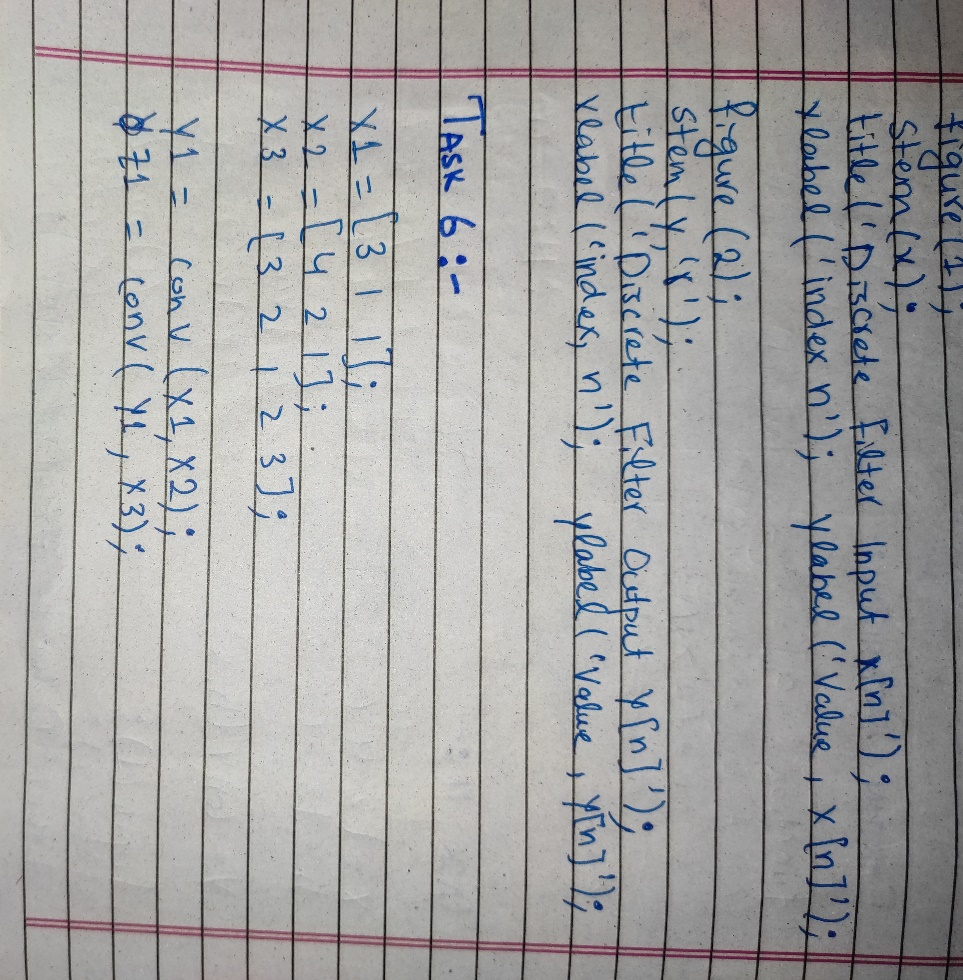 figure(1);
stem(x);
title('Discrete Filter Input x[n]');
xlabel('index n'); ylabel('Value, x[n]');
figure(2);
stem(y,'r');
title('Discrete Filter Output y[n]');
xlabel('index, n'); ylabel('Value, y[n]');
TASK 6:-
X1 = [3 1 1];
X2 = [4 2 1];
X3 = [3 2 1 2 3];
Y1 = conv(X1, X2);
Z1 = conv(Y1, X3);